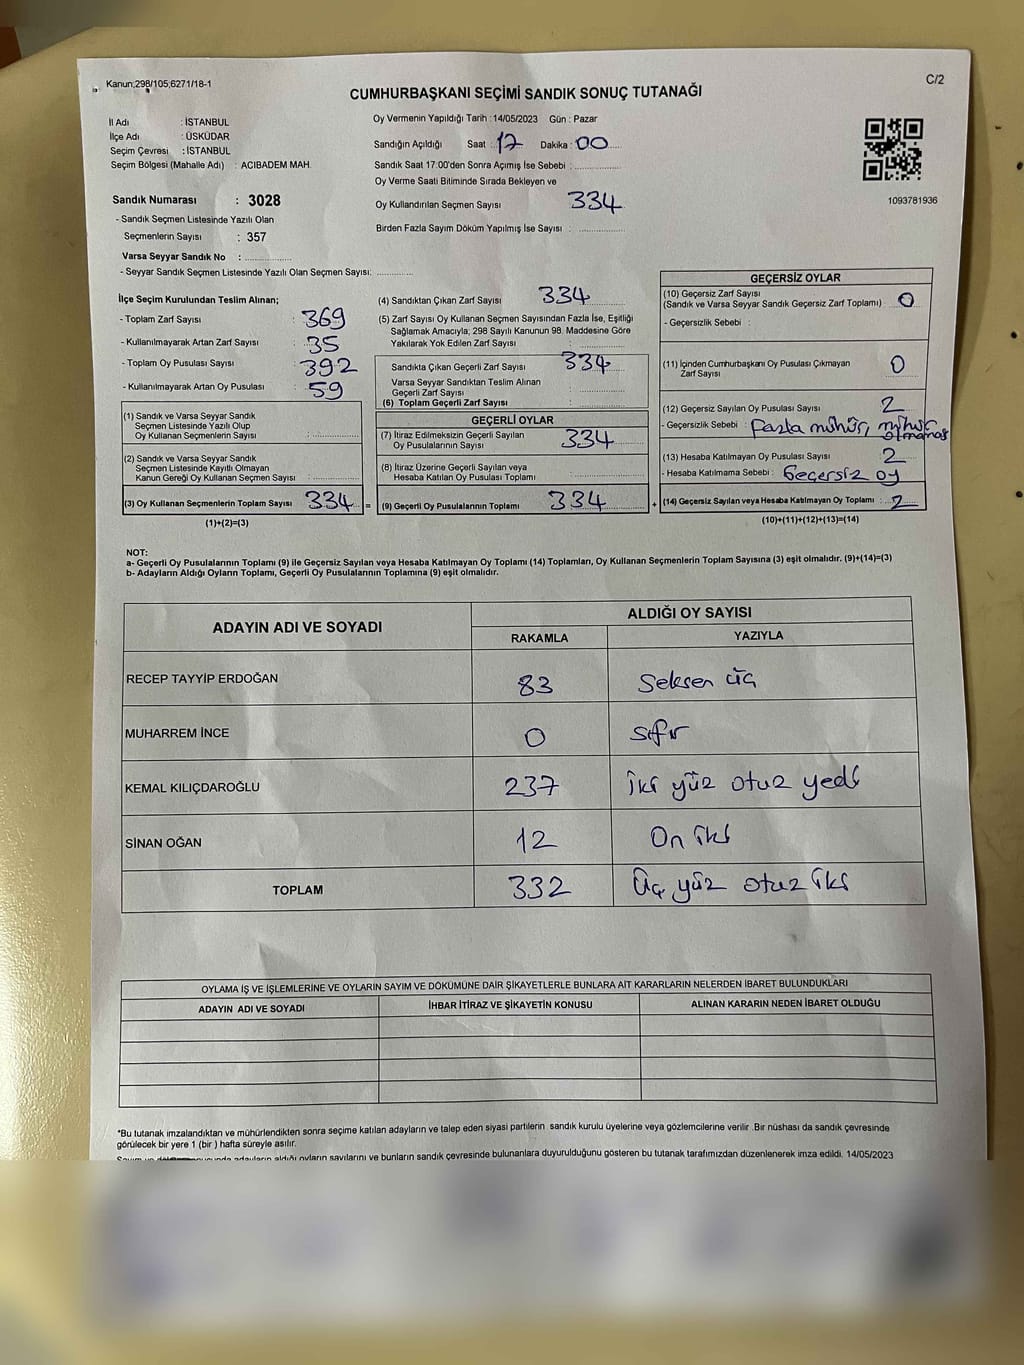 Kanun;298/105;6271/18-1
C/2
CUMHURBAŞKANI SEÇİMİ SANDIK SONUÇ TUTANAĞI
İl Adı : İSTANBUL
İlçe Adı : ÜSKÜDAR
Seçim Çevresi : İSTANBUL
Seçim Bölgesi (Mahalle Adı) : ACIBADEM MAH.
Oy Vermenin Yapıldığı Tarih : 14/05/2023 Gün : Pazar
Sandığın Açıldığı Saat : 17 Dakika : 00
Sandık Saat 17:00'den Sonra Açımış İse Sebebi :
Oy Verme Saati Bitiminde Sırada Bekleyen ve
Oy Kullandırılan Seçmen Sayısı 334
Birden Fazla Sayım Döküm Yapılmış İse Sayısı :
1093781936
Sandık Numarası : 3028
- Sandık Seçmen Listesinde Yazılı Olan
Seçmenlerin Sayısı : 357
Varsa Seyyar Sandık No :
- Seyyar Sandık Seçmen Listesinde Yazılı Olan Seçmen Sayısı:
İlçe Seçim Kurulundan Teslim Alınan;
- Toplam Zarf Sayısı : 369
- Kullanılmayarak Artan Zarf Sayısı : 35
- Toplam Oy Pusulası Sayısı : 392
- Kullanılmayarak Artan Oy Pusulası : 59
(1) Sandık ve Varsa Seyyar Sandık
Seçmen Listesinde Yazılı Olup
Oy Kullanan Seçmenlerin Sayısı :
(2) Sandık ve Varsa Seyyar Sandık
Seçmen Listesinde Kayıtlı Olmayan
Kanun Gereği Oy Kullanan Seçmen Sayısı :
(3) Oy Kullanan Seçmenlerin Toplam Sayısı 334 =
(1)+(2)=(3)
(4) Sandıktan Çıkan Zarf Sayısı 334
(5) Zarf Sayısı Oy Kullanan Seçmen Sayısından Fazla İse, Eşitliği
Sağlamak Amacıyla; 298 Sayılı Kanunun 98. Maddesine Göre
Yakılarak Yok Edilen Zarf Sayısı :
Sandıkta Çıkan Geçerli Zarf Sayısı 334
Varsa Seyyar Sandıktan Teslim Alınan
Geçerli Zarf Sayısı :
(6) Toplam Geçerli Zarf Sayısı :
GEÇERLİ OYLAR
(7) İtiraz Edilmeksizin Geçerli Sayılan
Oy Pusulalarının Sayısı : 334
(8) İtiraz Üzerine Geçerli Sayılan veya
Hesaba Katılan Oy Pusulası Toplamı :
(9) Geçerli Oy Pusulalarının Toplamı 334 +
GEÇERSİZ OYLAR
(10) Geçersiz Zarf Sayısı
(Sandık ve Varsa Seyyar Sandık Geçersiz Zarf Toplamı) : 0
- Geçersizlik Sebebi :
(11) İçinden Cumhurbaşkanı Oy Pusulası Çıkmayan
Zarf Sayısı 0
(12) Geçersiz Sayılan Oy Pusulası Sayısı 2
- Geçersizlik Sebebi : Fazla mühür, mühür
olmaması
(13) Hesaba Katılmayan Oy Pusulası Sayısı : 2
- Hesaba Katılmama Sebebi : Geçersiz oy
(14) Geçersiz Sayılan veya Hesaba Katılmayan Oy Toplamı : 2
(10)+(11)+(12)+(13)=(14)
NOT:
a- Geçerli Oy Pusulalarının Toplamı (9) ile Geçersiz Sayılan veya Hesaba Katılmayan Oy Toplamı (14) Toplamları, Oy Kullanan Seçmenlerin Toplam Sayısına (3) eşit olmalıdır. (9)+(14)=(3)
b- Adayların Aldığı Oyların Toplamı, Geçerli Oy Pusulalarının Toplamına (9) eşit olmalıdır.
ADAYIN ADI VE SOYADI ALDIĞI OY SAYISI
RAKAMLA YAZIYLA
RECEP TAYYİP ERDOĞAN 83 Seksen üç
MUHARREM İNCE 0 sıfır
KEMAL KILIÇDAROĞLU 237 İki yüz otuz yedi
SİNAN OĞAN 12 On iki
TOPLAM 332 Üç yüz otuz iki
OYLAMA İŞ VE İŞLEMLERİNE VE OYLARIN SAYIM VE DÖKÜMÜNE DAİR ŞİKAYETLERLE BUNLARA AİT KARARLARIN NELERDEN İBARET BULUNDUKLARI
ADAYIN ADI VE SOYADI İHBAR İTİRAZ VE ŞİKAYETİN KONUSU ALINAN KARARIN NEDEN İBARET OLDUĞU
*Bu tutanak imzalandıktan ve mühürlendikten sonra seçime katılan adayların ve talep eden siyasi partilerin sandık kurulu üyelerine veya gözlemcilerine verilir .Bir nüshası da sandık çevresinde
görülecek bir yere 1 (bir ) hafta süreyle asılır.
adayların aldığı oyların sayılarını ve bunların sandık çevresinde bulunanlara duyurulduğunu gösteren bu tutanak tarafımızdan düzenlenerek imza edildi. 14/05/2023